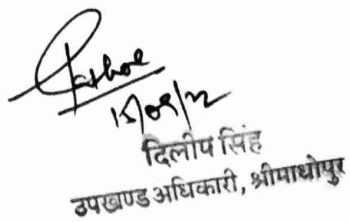 15/09/22
दिलीप सिंह
उपखण्ड अधिकारी, श्रीमाधोपुर